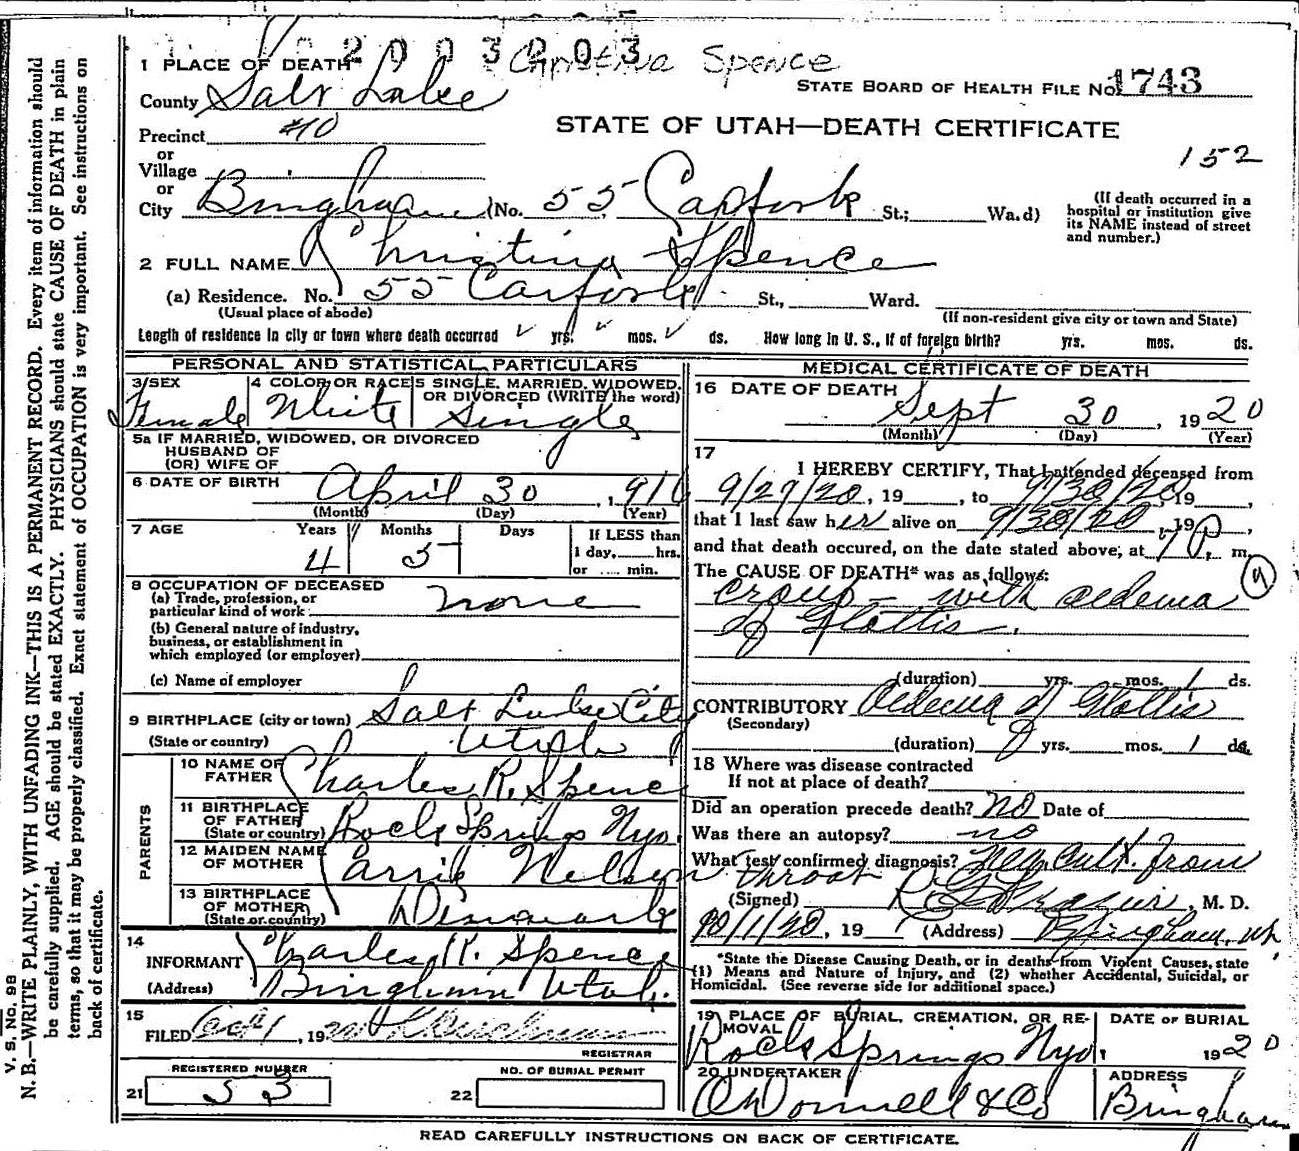 2003003
Christina Spence
1 PLACE OF DEATH
STATE BOARD OF HEALTH FILE No. 1743
County Salt Lake
Precinct #10
STATE OF UTAH—DEATH CERTIFICATE
152
or
Village
or
City Bingham (No. 55 Carfork St.; Wa.d)
(If death occurred in a hospital or institution give its NAME instead of street and number.)
2 FULL NAME Christina Spence
(a) Residence. No. 55 Carfork St., Ward.
(Usual place of abode)
(If non-resident give city or town and State)
Length of residence in city or town where death occurred yrs. mos. ds. How long in U. S., if of foreign birth? yrs. mos. ds.
PERSONAL AND STATISTICAL PARTICULARS
3 SEX Female
4 COLOR OR RACE White
5 SINGLE, MARRIED, WIDOWED, OR DIVORCED (WRITE the word) Single
5a IF MARRIED, WIDOWED, OR DIVORCED
HUSBAND OF
(OR) WIFE OF
6 DATE OF BIRTH April 30, 1916
(Month) (Day) (Year)
7 AGE Years 4 Months 5 Days
If LESS than
1 day, hrs.
or min.
8 OCCUPATION OF DECEASED
(a) Trade, profession, or
particular kind of work none
(b) General nature of industry,
business, or establishment in
which employed (or employer)
(c) Name of employer
9 BIRTHPLACE (city or town) Salt Lake City
(State or country) Utah
PARENTS
10 NAME OF FATHER Charles R. Spence
11 BIRTHPLACE OF FATHER (State or country) Rock Springs Wyo.
12 MAIDEN NAME OF MOTHER Carrie Nelson
13 BIRTHPLACE OF MOTHER (State or country) Denmark
14
INFORMANT Charles R. Spence
(Address) Bingham Utah.
15
FILED Oct 1, 1920
REGISTRAR
REGISTERED NUMBER
21 53
NO. OF BURIAL PERMIT
22
MEDICAL CERTIFICATE OF DEATH
16 DATE OF DEATH Sept 30, 1920
(Month) (Day) (Year)
17
I HEREBY CERTIFY, That I attended deceased from
9/27/20, 19 , to 9/30/20, 19 ,
that I last saw her alive on 9/30/20, 19 ,
and that death occured, on the date stated above, at 7 P. m.
The CAUSE OF DEATH* was as follows:
9
Croup - with oedema
of Glottis.
(duration) yrs. mos. 1 ds.
CONTRIBUTORY Oedema of Glottis
(Secondary)
(duration) yrs. mos. 1 ds.
18 Where was disease contracted
If not at place of death?
Did an operation precede death? No Date of
Was there an autopsy? no
What test confirmed diagnosis? Neg Cult. from
throat
(Signed) , M. D.
10/1/20, 19 (Address) Bingham, Ut
*State the Disease Causing Death, or in deaths from Violent Causes, state
(1) Means and Nature of Injury, and (2) whether Accidental, Suicidal, or
Homicidal. (See reverse side for additional space.)
19 PLACE OF BURIAL, CREMATION, OR REMOVAL Rock Springs Wyo.
DATE OF BURIAL
1920
20 UNDERTAKER O'Donnell & Co
ADDRESS
Bingham
READ CAREFULLY INSTRUCTIONS ON BACK OF CERTIFICATE.
V. S. No. 98
N. B.—WRITE PLAINLY, WITH UNFADING INK—THIS IS A PERMANENT RECORD. Every item of information should
be carefully supplied. AGE should be stated EXACTLY. PHYSICIANS should state CAUSE OF DEATH in plain
terms, so that it may be properly classified. Exact statement of OCCUPATION is very important. See instructions on
back of certificate.